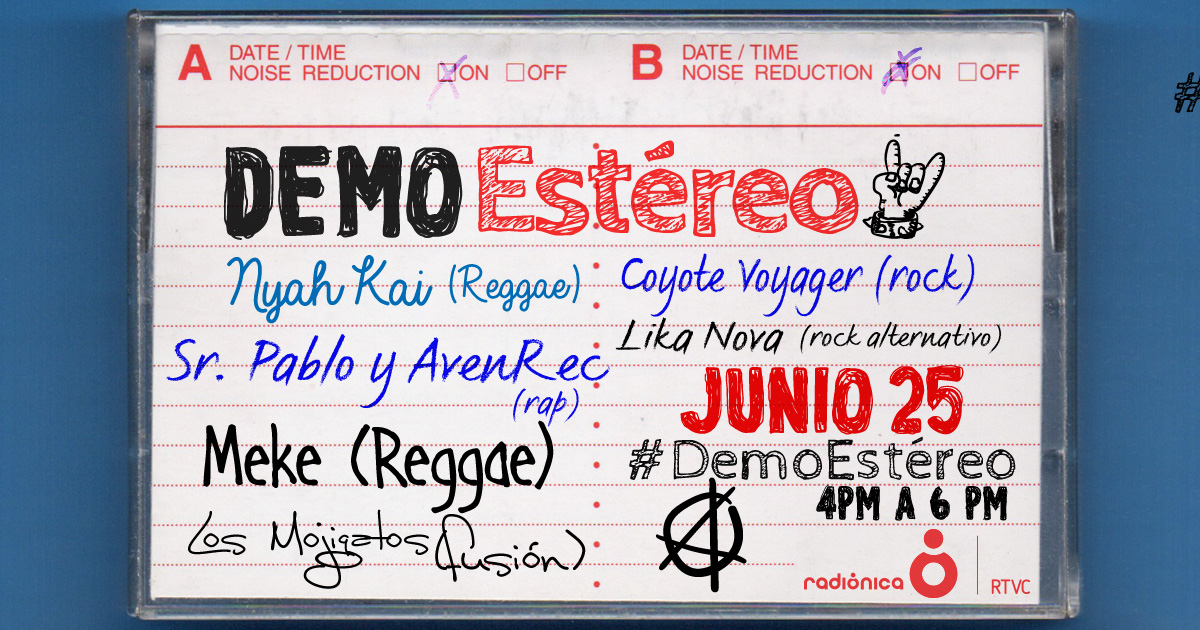 A DATE / TIME
NOISE REDUCTION ON OFF
B DATE / TIME
NOISE REDUCTION ON OFF
DEMO Estéreo
Nyah Kai (Reggae)
Sr. Pablo y AvenRec
(rap)
Meke (Reggae)
Los Mojigatos (fusión)
Coyote Voyager (rock)
Lika Nova (rock alternativo)
JUNIO 25
#DemoEstéreo
4PM A 6 PM
radiónica
RTVC
#